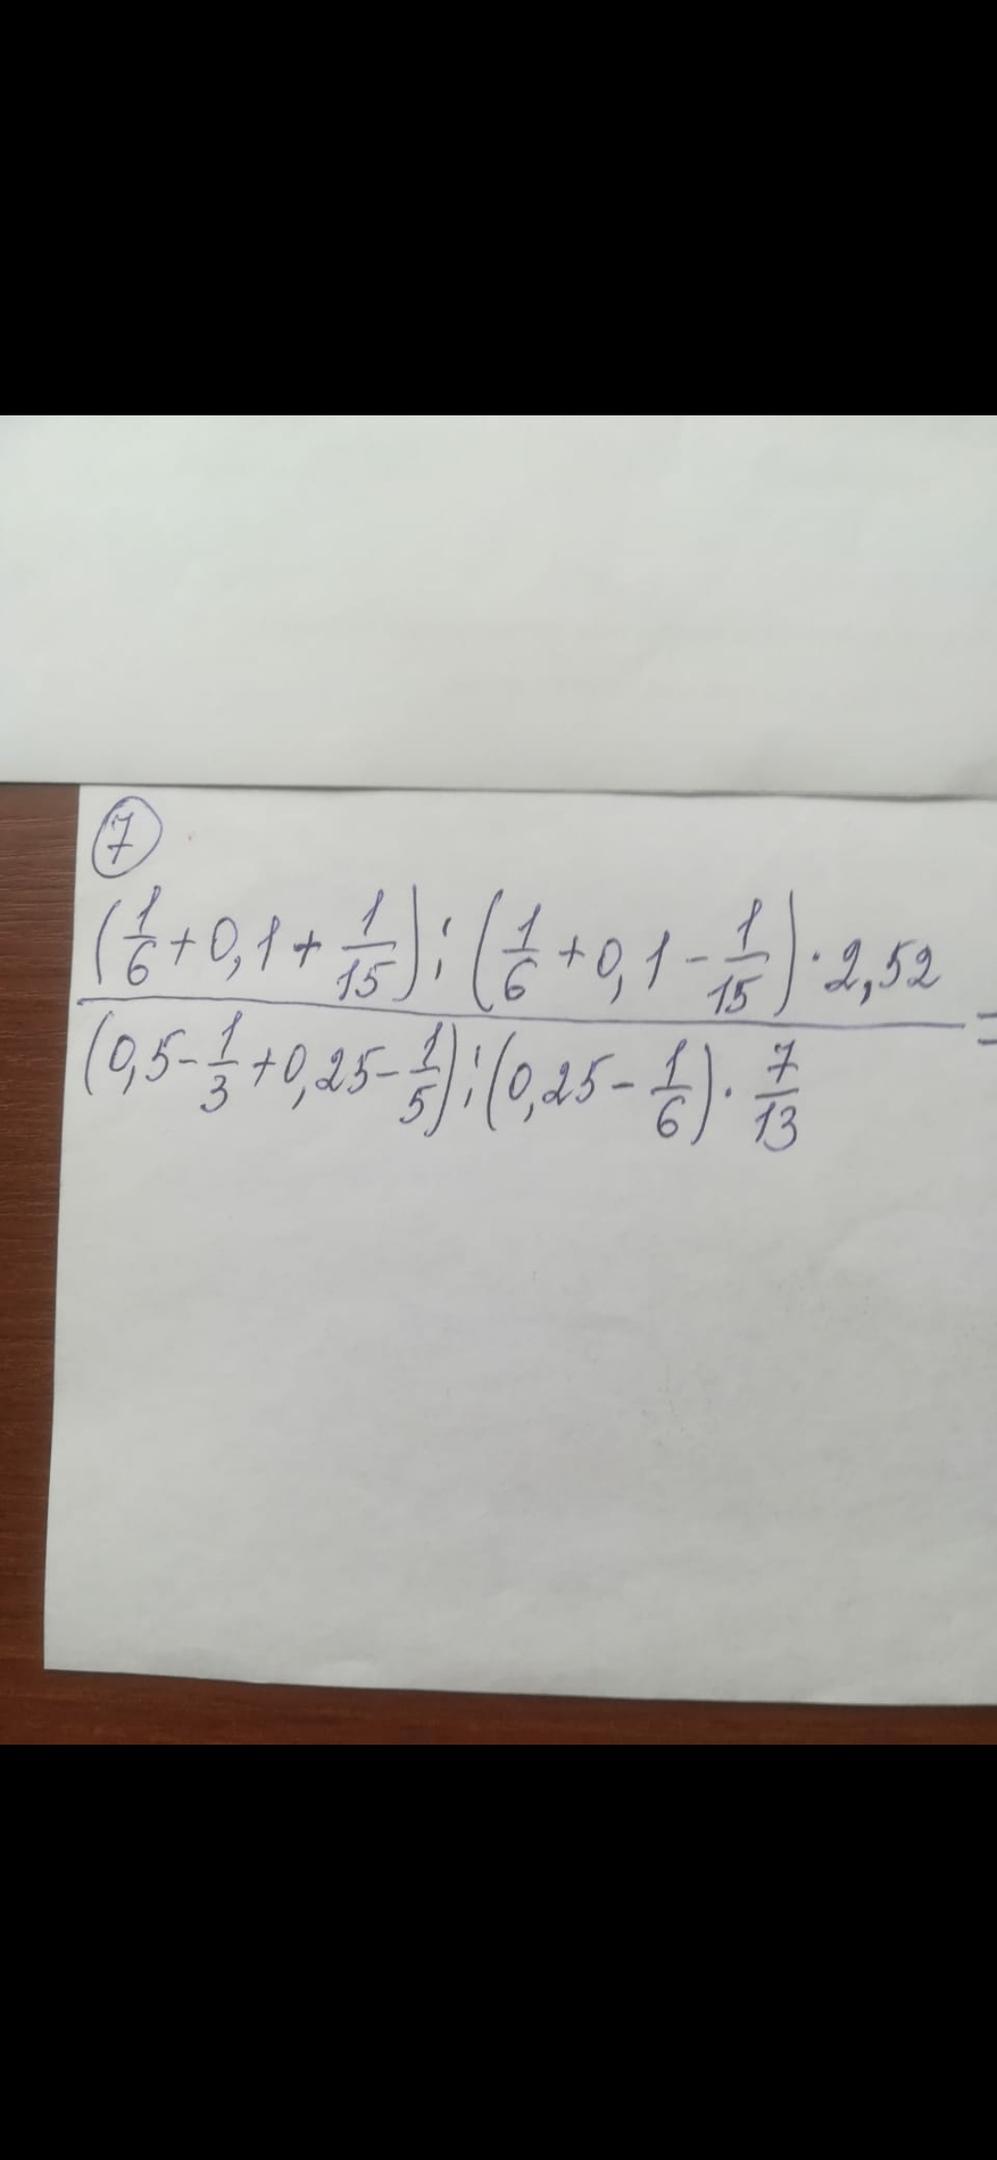 7
(1/6 + 0,1 + 1/15) : (1/6 + 0,1 - 1/15) · 2,52
(0,5 - 1/3 + 0,25 - 1/5) : (0,25 - 1/6) · 7/13 =